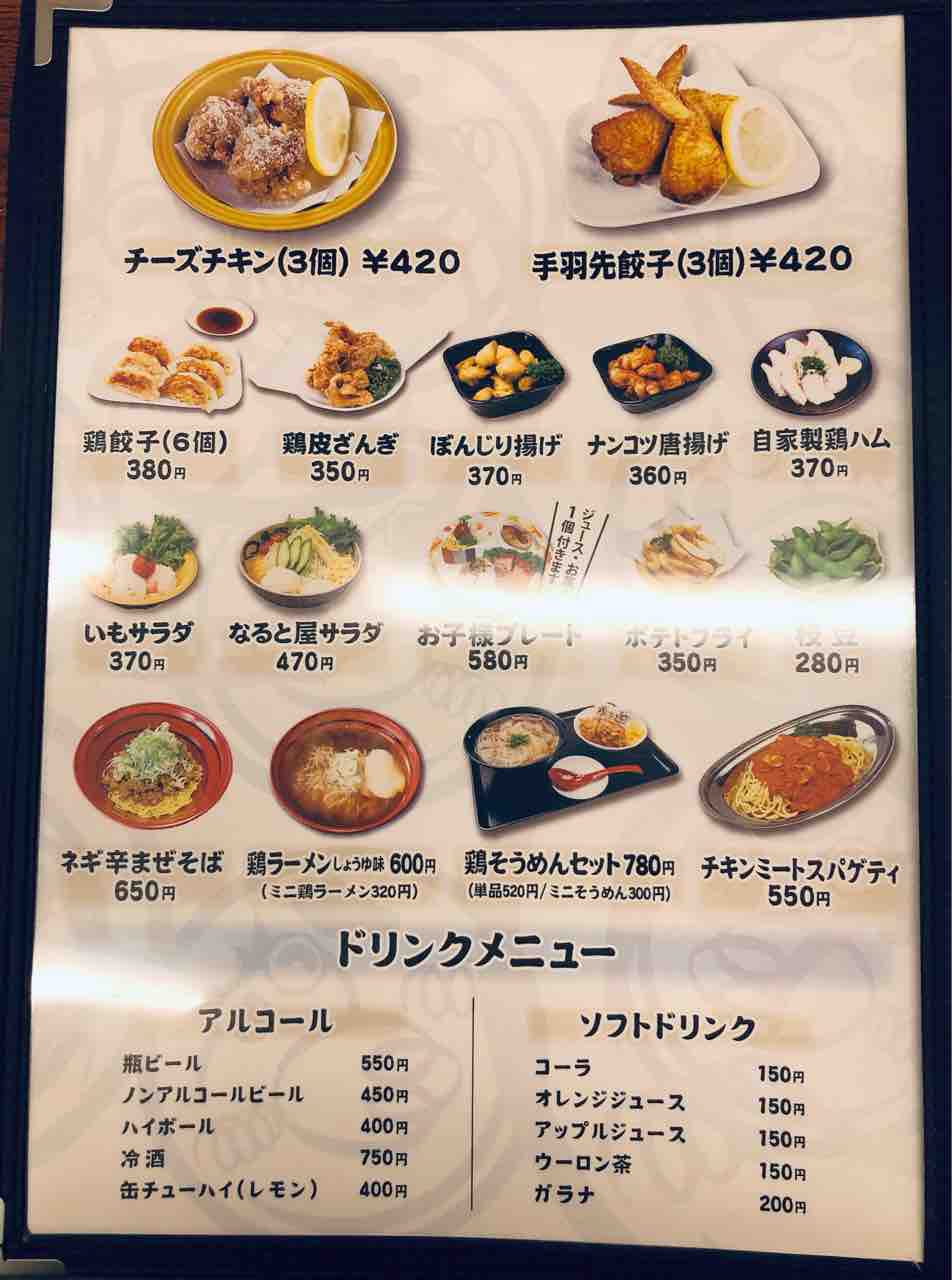 チーズチキン(3個) ¥420
手羽先餃子(3個)¥420
鶏餃子(6個)
380円
鶏皮ざんぎ
350円
ぼんじり揚げ
370円
ナンコツ唐揚げ
360円
自家製鶏ハム
370円
いもサラダ
370円
なると屋サラダ
470円
ジュース・お
1個付きます
お子様プレート
580円
ポテトフライ
350円
枝豆
280円
ネギ辛まぜそば
650円
鶏ラーメンしょうゆ味 600円
(ミニ鶏ラーメン320円)
鶏そうめんセット780円
(単品520円/ミニそうめん300円)
チキンミートスパゲティ
550円
ドリンクメニュー
アルコール
瓶ビール 550円
ノンアルコールビール 450円
ハイボール 400円
冷酒 750円
缶チューハイ(レモン) 400円
ソフトドリンク
コーラ 150円
オレンジジュース 150円
アップルジュース 150円
ウーロン茶 150円
ガラナ 200円